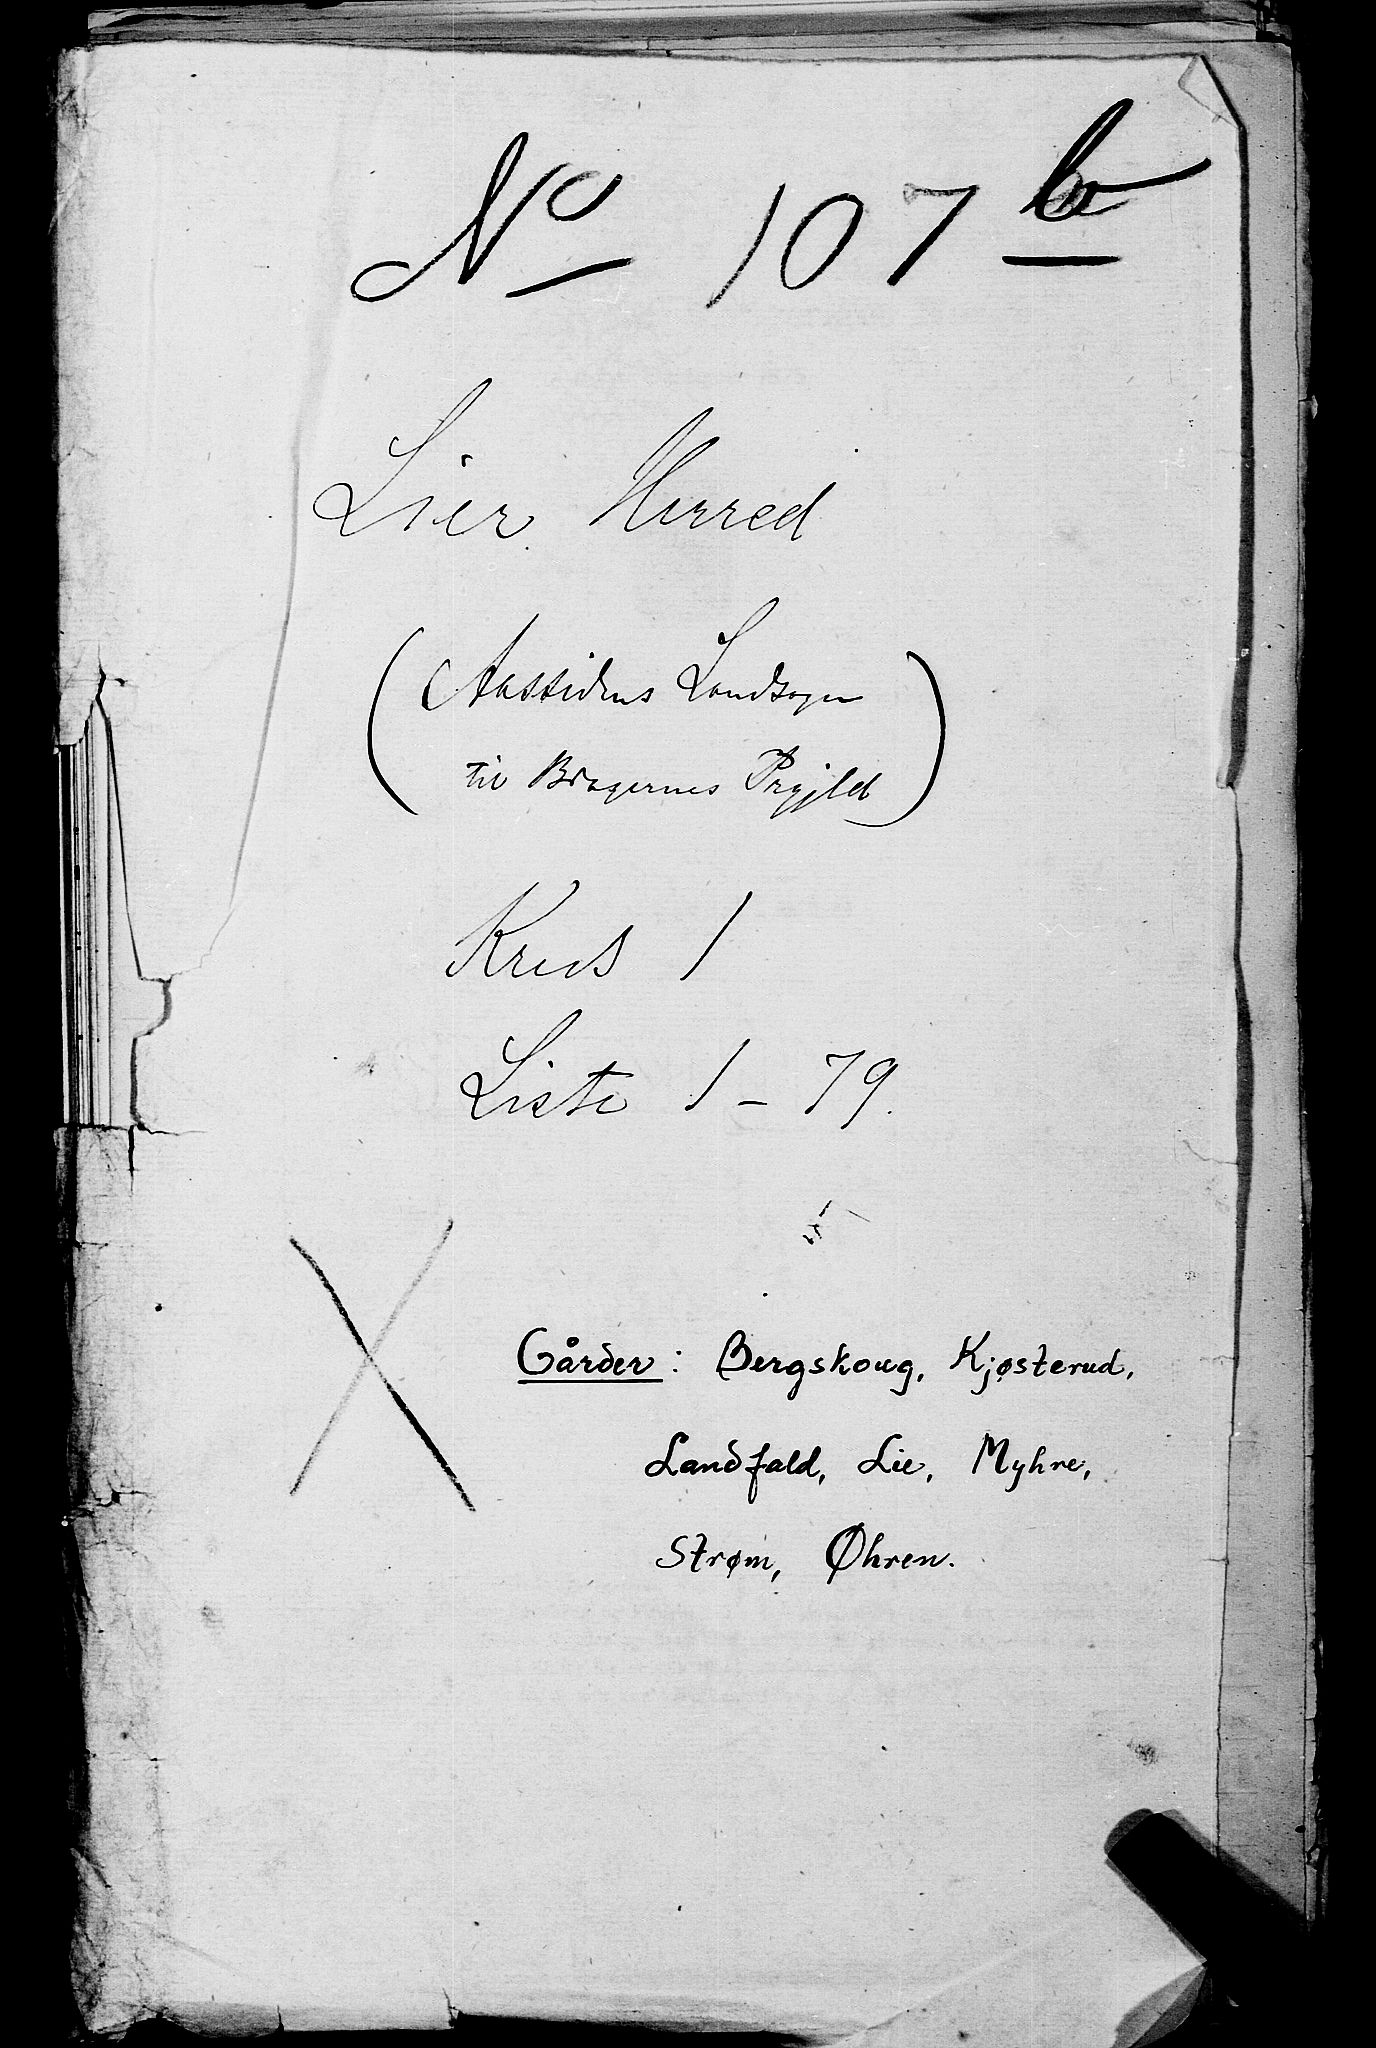 No 107 b
Lier Herred
(Aassidens Landsogn
til Bragernes Prgjld)
Kreds 1
Liste 1 – 79.
Gårder: Bergskoug, Kjøsterud,
Landfald, Lie, Myhre,
Strøm, Øhren.